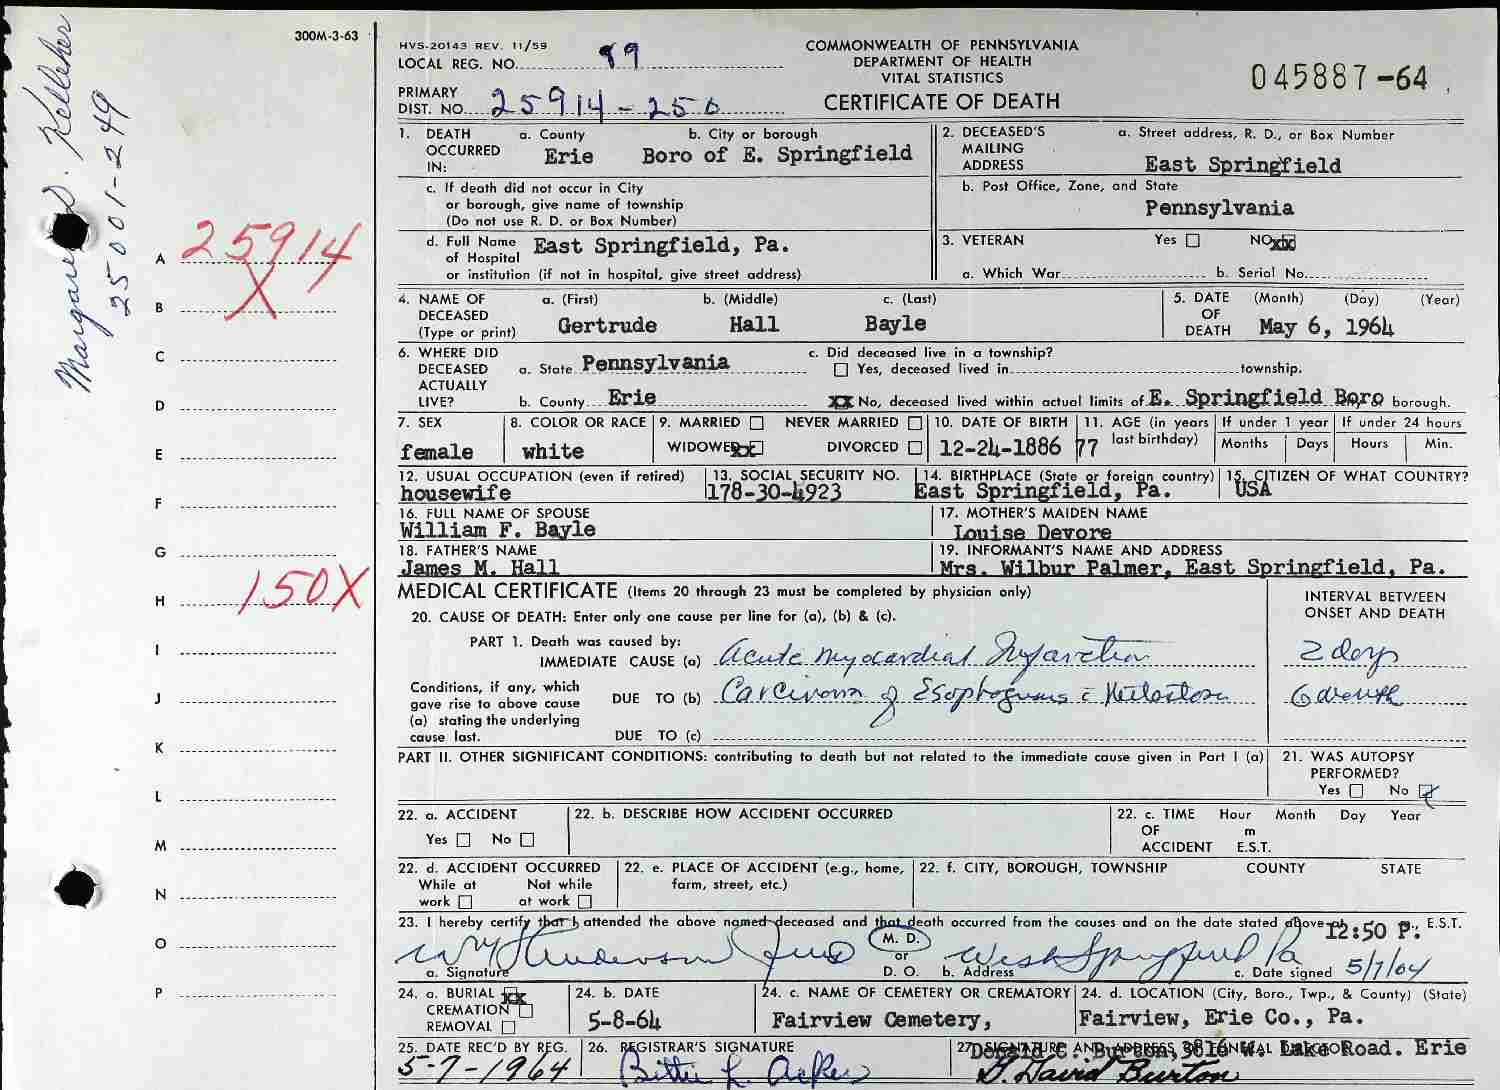 300M-3-63
HVS-20143 REV. 11/59
LOCAL REG. NO. 89
COMMONWEALTH OF PENNSYLVANIA
DEPARTMENT OF HEALTH
VITAL STATISTICS
CERTIFICATE OF DEATH
045887-64
PRIMARY
DIST. NO. 25914-250
Margaret D. Kelleher
25001-249
1. DEATH OCCURRED IN: a. County Erie b. City or borough Boro of E. Springfield
c. If death did not occur in City
or borough, give name of township
(Do not use R. D. or Box Number)
d. Full Name of Hospital East Springfield, Pa.
or institution (if not in hospital, give street address)
2. DECEASED'S MAILING ADDRESS a. Street address, R. D., or Box Number
East Springfield
b. Post Office, Zone, and State
Pennsylvania
3. VETERAN Yes NO xx
a. Which War b. Serial No.
4. NAME OF DECEASED (Type or print) a. (First) b. (Middle) c. (Last)
Gertrude Hall Bayle
5. DATE OF DEATH (Month) (Day) (Year)
May 6, 1964
6. WHERE DID DECEASED ACTUALLY LIVE? a. State Pennsylvania
b. County Erie
c. Did deceased live in a township?
Yes, deceased lived in township.
xx No, deceased lived within actual limits of E. Springfield Boro borough.
7. SEX female
8. COLOR OR RACE white
9. MARRIED NEVER MARRIED
WIDOWED xx DIVORCED
10. DATE OF BIRTH 12-24-1886
11. AGE (in years last birthday) 77
If under 1 year Months Days
If under 24 hours Hours Min.
12. USUAL OCCUPATION (even if retired)
housewife
13. SOCIAL SECURITY NO.
178-30-4923
14. BIRTHPLACE (State or foreign country)
East Springfield, Pa.
15. CITIZEN OF WHAT COUNTRY?
USA
16. FULL NAME OF SPOUSE
William F. Bayle
17. MOTHER'S MAIDEN NAME
Louise Devore
18. FATHER'S NAME
James M. Hall
19. INFORMANT'S NAME AND ADDRESS
Mrs. Wilbur Palmer, East Springfield, Pa.
MEDICAL CERTIFICATE (Items 20 through 23 must be completed by physician only)
INTERVAL BETWEEN ONSET AND DEATH
20. CAUSE OF DEATH: Enter only one cause per line for (a), (b) & (c).
PART 1. Death was caused by:
IMMEDIATE CAUSE (a) Acute Myocardial Infarction 2 days
Conditions, if any, which
gave rise to above cause
(a) stating the underlying
cause last.
DUE TO (b) Carcinoma of Esophagus c̄ 6 month
DUE TO (c)
PART II. OTHER SIGNIFICANT CONDITIONS: contributing to death but not related to the immediate cause given in Part I (a)
21. WAS AUTOPSY PERFORMED?
Yes No
22. a. ACCIDENT
Yes No
22. b. DESCRIBE HOW ACCIDENT OCCURRED
22. c. TIME OF ACCIDENT Hour Month Day Year
m
E.S.T.
22. d. ACCIDENT OCCURRED
While at work Not while at work
22. e. PLACE OF ACCIDENT (e.g., home, farm, street, etc.)
22. f. CITY, BOROUGH, TOWNSHIP COUNTY STATE
23. I hereby certify that I attended the above named deceased and that death occurred from the causes and on the date stated above at 12:50 P. E.S.T.
a. Signature M. D. or D. O. b. Address West Springfield Pa c. Date signed 5/7/64
24. a. BURIAL xx
CREMATION
REMOVAL
24. b. DATE
5-8-64
24. c. NAME OF CEMETERY OR CREMATORY
Fairview Cemetery,
24. d. LOCATION (City, Boro., Twp., & County) (State)
Fairview, Erie Co., Pa.
25. DATE REC'D BY REG.
5-7-1964
26. REGISTRAR'S SIGNATURE
27. SIGNATURE AND ADDRESS OF FUNERAL DIRECTOR
Donald C. Burton, 3816 W. Lake Road. Erie
G. David Burton
A 25914
B X
C
D
E
F
G
H 150X
I
J
K
L
M
N
O
P